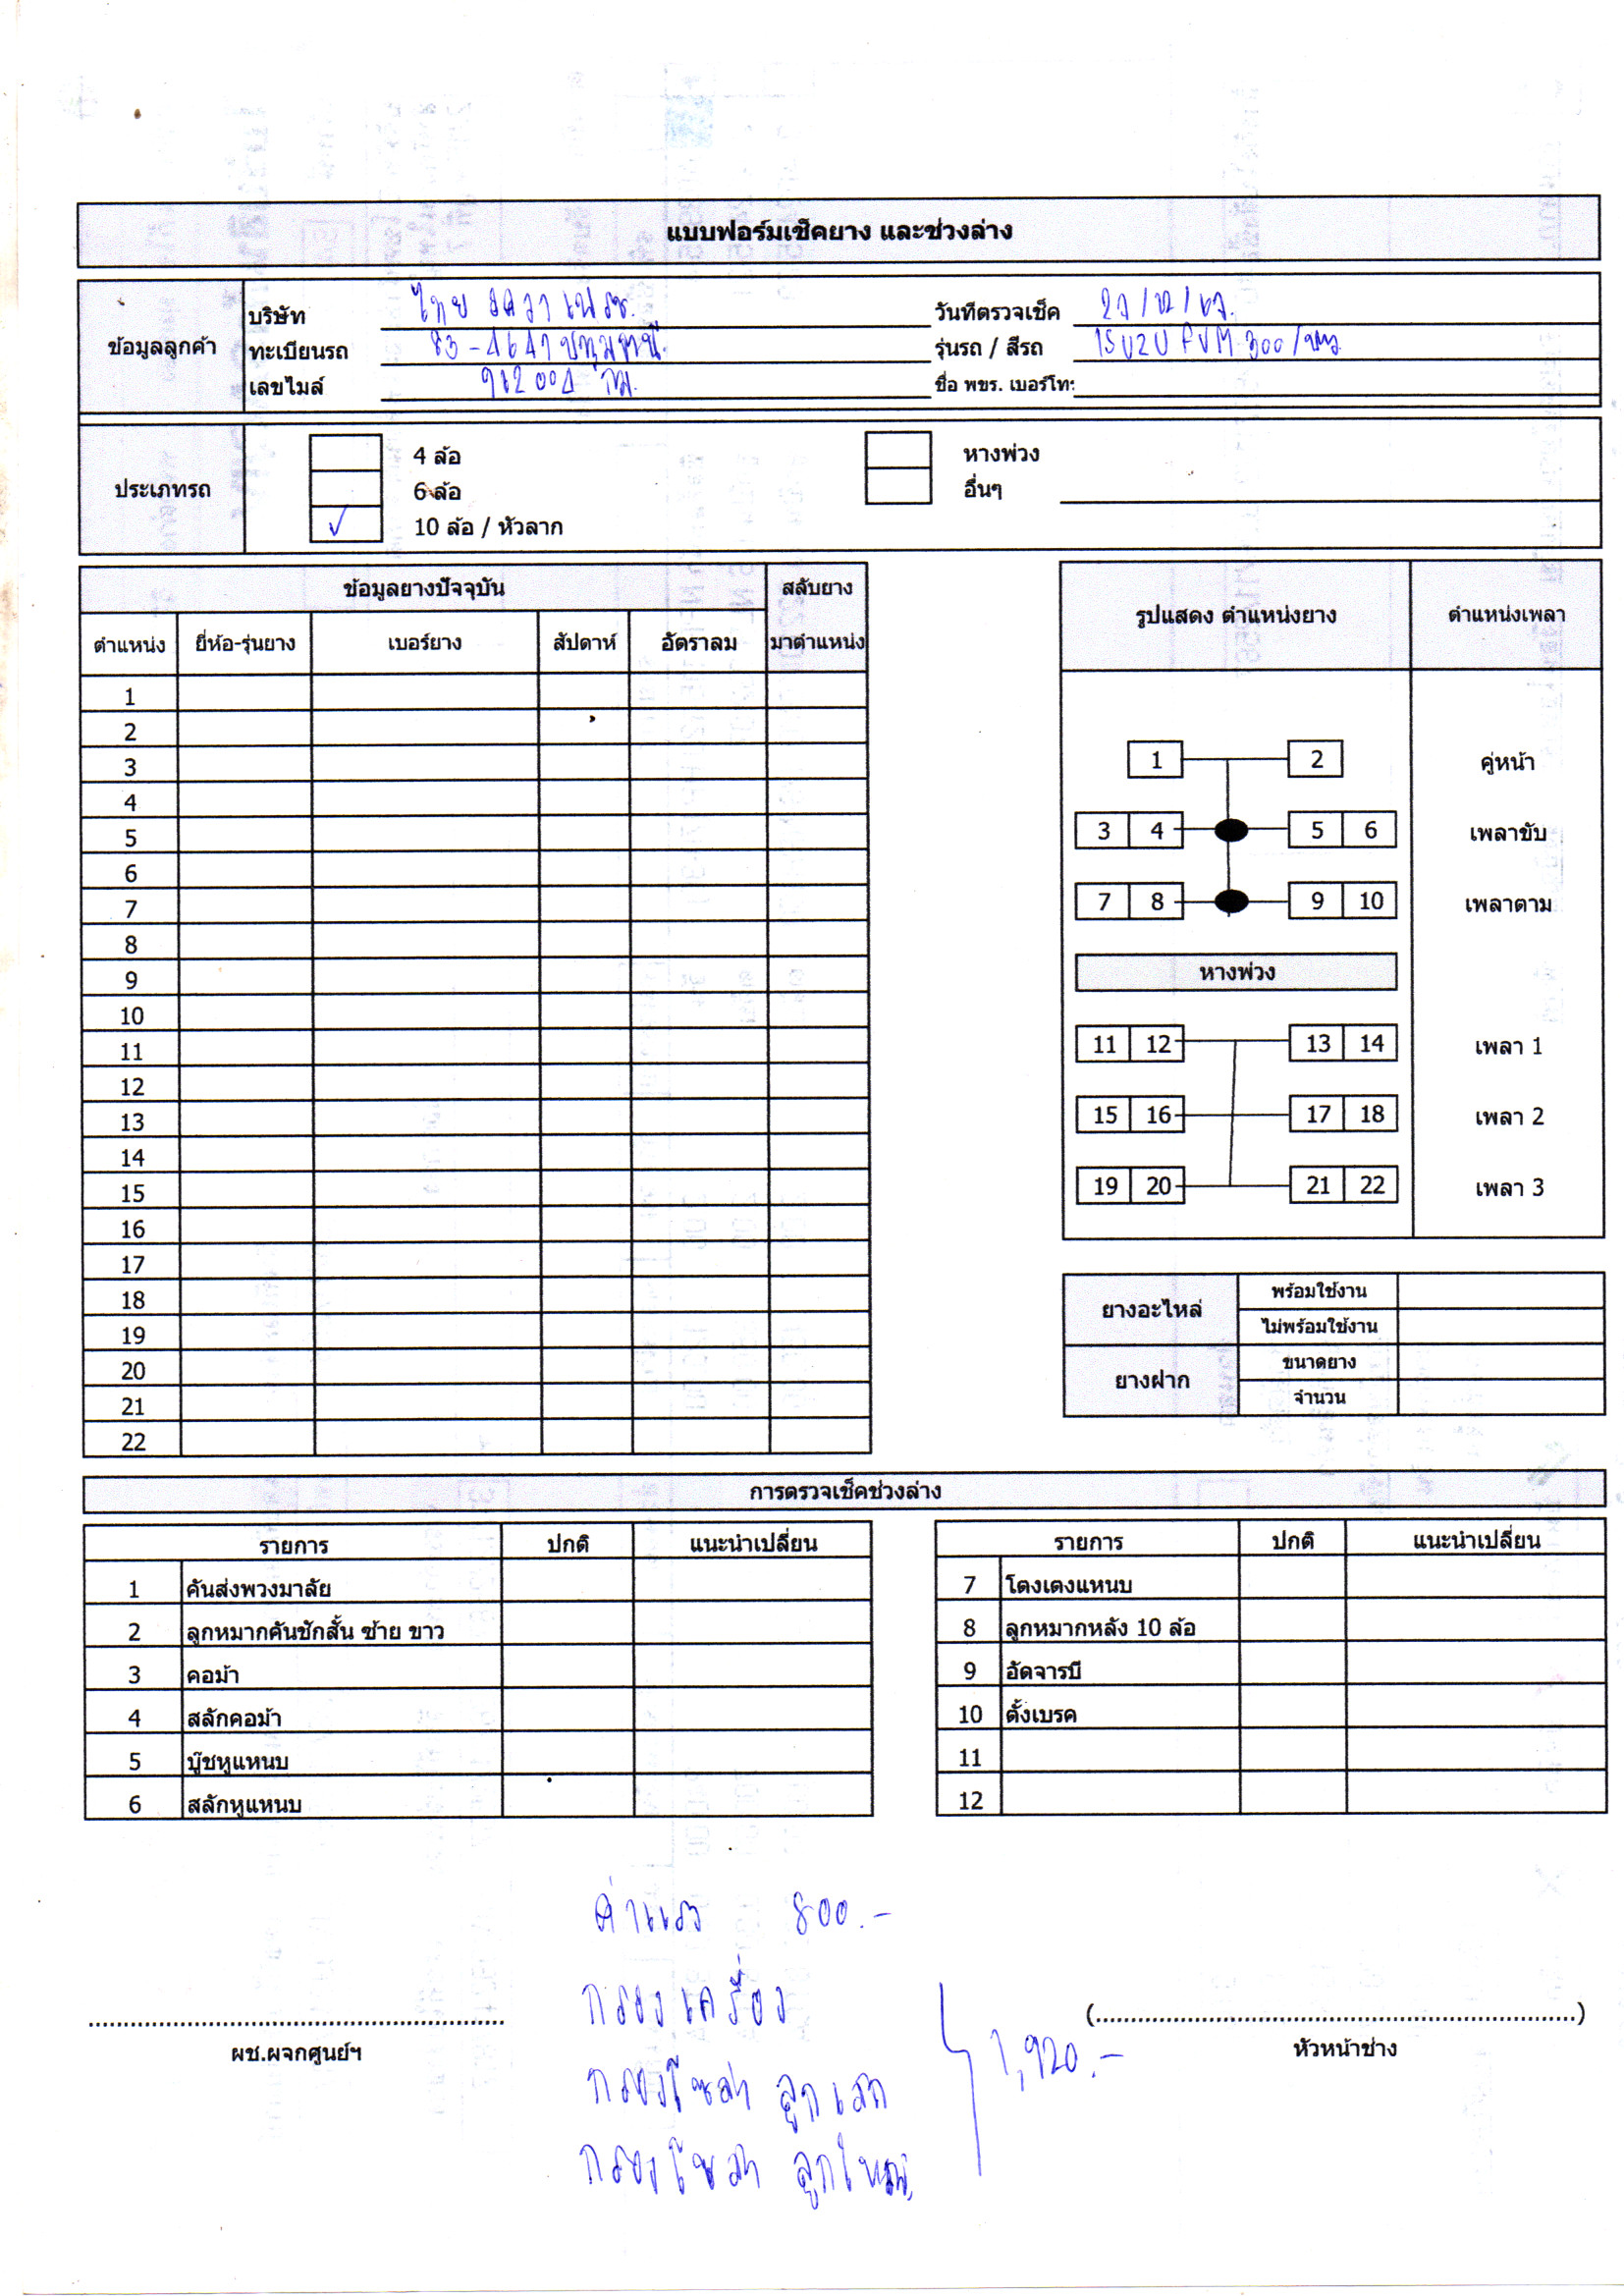 แบบฟอร์มเช็คยาง และช่วงล่าง
ข้อมูลลูกค้า
บริษัท ไทย เฟรช. วันที่ตรวจเช็ค 27/12/67.
ทะเบียนรถ 83-4647 ปทุมธานี. รุ่นรถ / สีรถ ISUZU FVM 300/ขาว
เลขไมล์ 912004 กม. ชื่อ พขร. เบอร์โทร
ประเภทรถ
4 ล้อ หางพ่วง
6 ล้อ อื่นๆ
✓ 10 ล้อ / หัวลาก
ข้อมูลยางปัจจุบัน สลับยาง
ตำแหน่ง ยี่ห้อ-รุ่นยาง เบอร์ยาง สัปดาห์ อัตราลม มาตำแหน่ง
1
2
3
4
5
6
7
8
9
10
11
12
13
14
15
16
17
18
19
20
21
22
รูปแสดง ตำแหน่งยาง ตำแหน่งเพลา
1 2 คู่หน้า
3 4 5 6 เพลาขับ
7 8 9 10 เพลาตาม
หางพ่วง
11 12 13 14 เพลา 1
15 16 17 18 เพลา 2
19 20 21 22 เพลา 3
ยางอะไหล่ พร้อมใช้งาน
ไม่พร้อมใช้งาน
ยางฝาก ขนาดยาง
จำนวน
การตรวจเช็คช่วงล่าง
รายการ ปกติ แนะนำเปลี่ยน
1 คันส่งพวงมาลัย
2 ลูกหมากคันชักสั้น ซ้าย ขาว
3 คอม้า
4 สลักคอม้า
5 บู๊ชหูแหนบ
6 สลักหูแหนบ
รายการ ปกติ แนะนำเปลี่ยน
7 โตงเตงแหนบ
8 ลูกหมากหลัง 10 ล้อ
9 อัดจารบี
10 ตั้งเบรค
11
12
ค่าแรง 800.-
กรองเครื่อง
กรองโซล่า ลูกเล็ก 1,920.-
กรองโซล่า ลูกใหญ่
ผช.ผจกศูนย์ฯ
(....................)
หัวหน้าช่าง